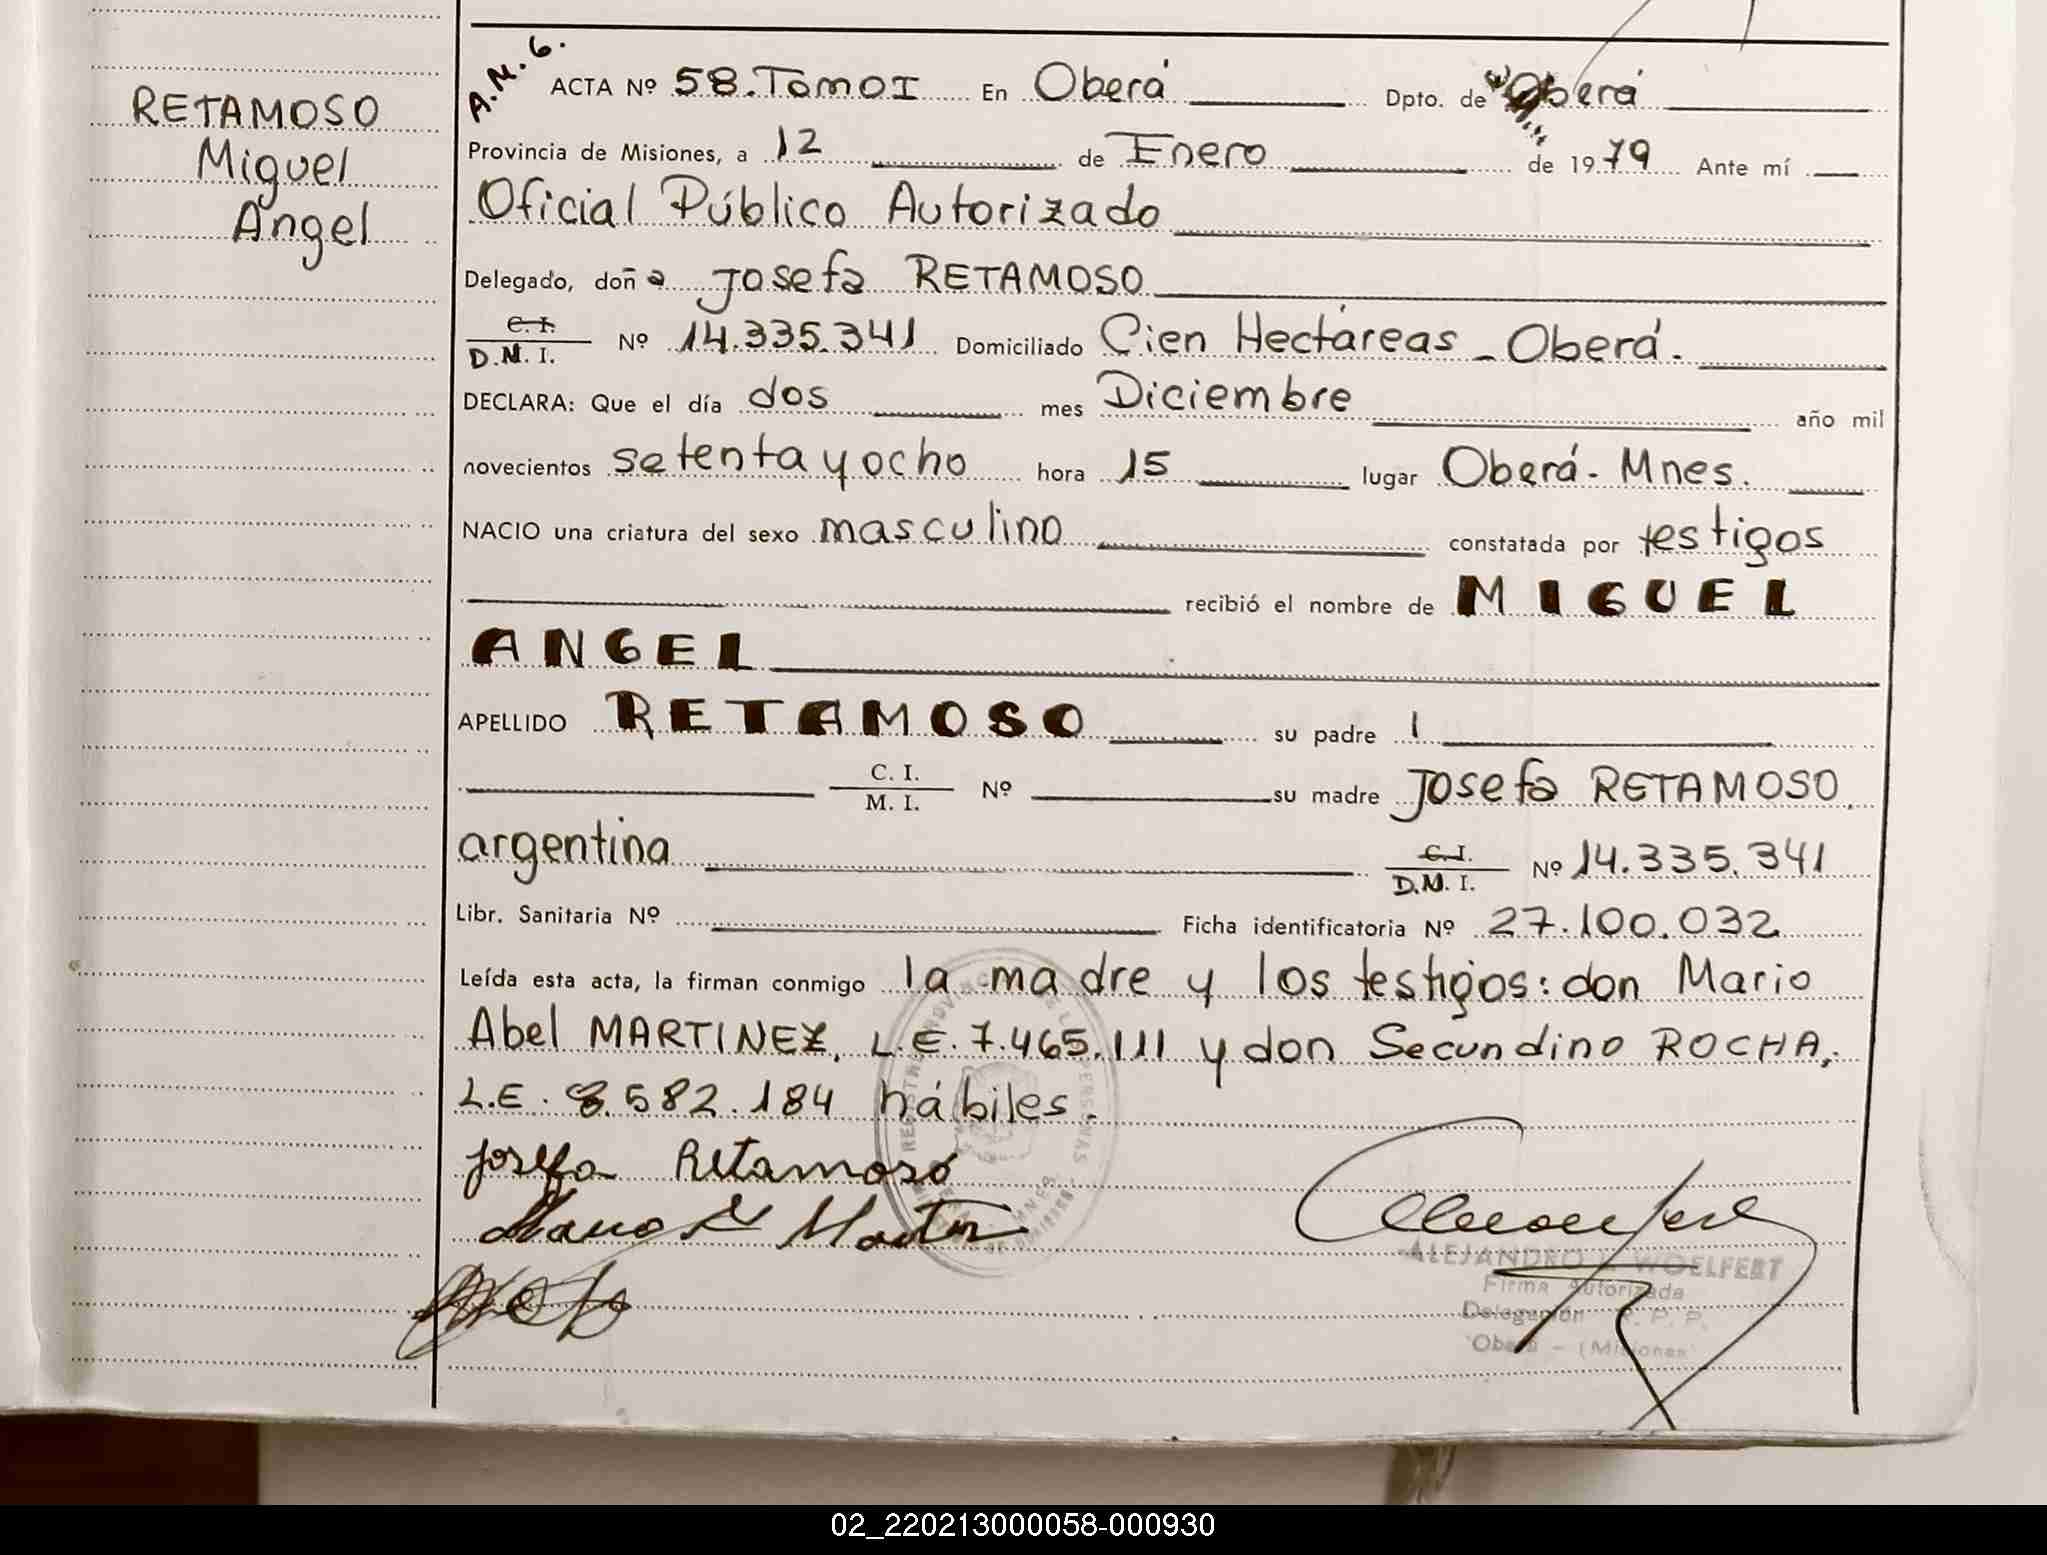 RETAMOSO
Miguel
Angel
A.M.G.
ACTA Nº 58.Tomo I En Oberá Dpto. de Oberá
Provincia de Misiones, a 12 de Enero de 1979 Ante mí
Oficial Público Autorizado
Delegado, doña Josefa RETAMOSO
C. I.
D.M. I. Nº 14.335.341 Domiciliado Cien Hectáreas - Oberá.
DECLARA: Que el día dos mes Diciembre año mil
novecientos setenta y ocho hora 15 lugar Oberá - Mnes.
NACIO una criatura del sexo masculino constatada por testigos
recibió el nombre de MIGUEL
ANGEL
APELLIDO RETAMOSO su padre
C. I.
M. I. Nº su madre Josefa RETAMOSO,
argentina C.I.
D.M. I. Nº 14.335.341
Libr. Sanitaria Nº Ficha identificatoria Nº 27.100.032
Leída esta acta, la firman conmigo la madre y los testigos: don Mario
Abel MARTINEZ, L.E. 7.465.111 y don Secundino ROCHA,
L.E. 8.582.184 hábiles.
Josefa Retamosó
ALEJANDRO WOELFERT
Firma Autorizada
Delegación R. P. P.
Oberá - (Misiones)
02_220213000058-000930